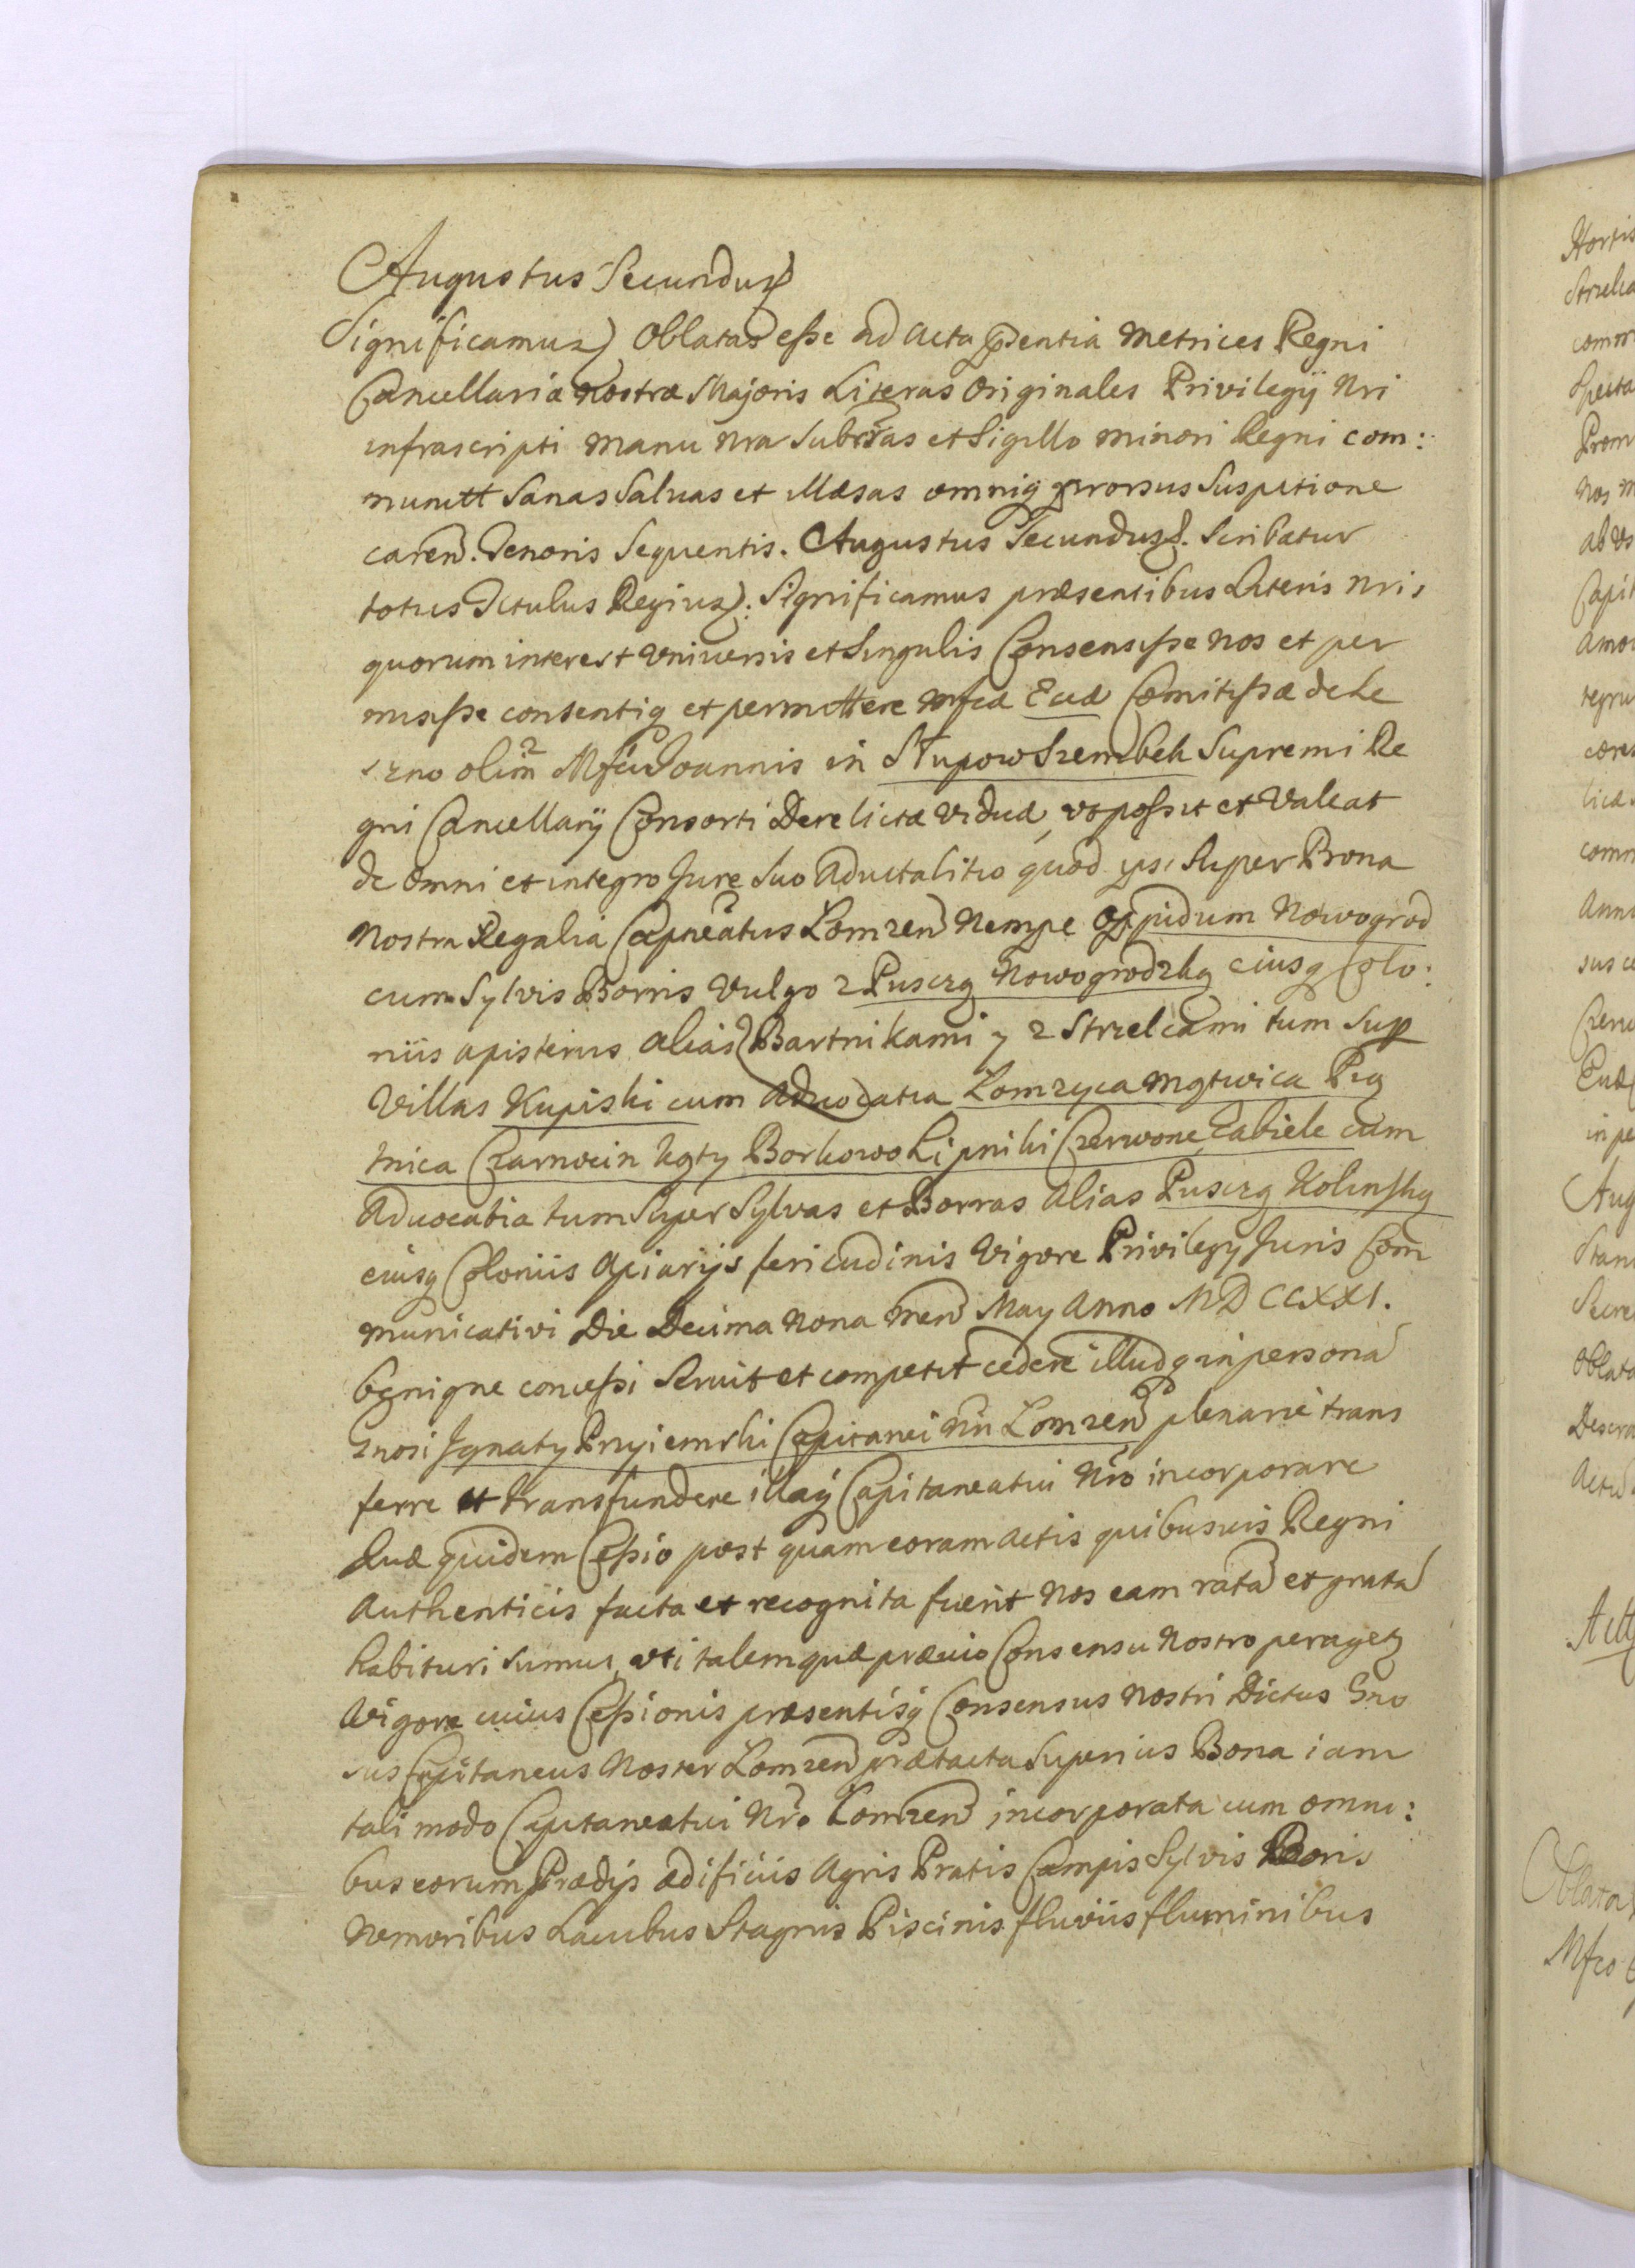 Augustus Secundus
Significamus Oblatas esse ad Acta pñsentia Metrices Regni
Cancellariæ Nostræ Majoris Literas Originales Privilegij Nri
infrascripti Manu Nra Subscr̃as et Sigillo Minori Regni com:
munitt Sanas Salvas et illæsas omniq̃ prorsus Suspitione
caren̄. Tenoris Sequentis. Augustus Secundus. Scribatur
totus Titulus Regius: Significamus præsentibus Literis Nris
quorum interest Universis et Singulis Consensisse Nos et per
misisse consentiq̃ et permittere Mfcæ Evæ Comitissæ de Le
szno olim Mfci Joannis in Słupow Szembek Supremi Re
gni Cancellarij Consorti Derelictæ Viduæ, vt possit et Valeat
de omni et integro Jure Suo Advitalitio quod ipsi Super Bona
Nostra Regalia Capneatus Łomzen̄ Nempe Oppidum Nowogrod
cum Sylvis Borris Vulgo z Puszczą Nowogrodzką eiusq̃ Colo:
niis apisterius alias Bartnikami y z Strzelcami tum Sup
Villas Kupiski cum Advocatia Łomzyca Mątwica Pią
tnica Czarnocin Kąty Borkowo Lipniki Czerwone Zabiele cum
Advocatia tum Super Sylvas et Borras Alias Puszczą Kolinską
eiusq̃ Coloniis Apiarijs fericudinis Vigore Privilegy Juris Com
municativi Die Decima Nona Men̄ May Anno MDCCXXI.
benigne concessi Servit et competit cedere illudq̃ in persona
Gnosi Ignaty Przyiemski Capitanei Nri Łomzen̄ plenarie trans
ferre et transfundere illaq̃ Capitaneatui Nro incorporare
Quæ quidem Cessio post quam coram Actis quibusvis Regni
Authenticis facta et recognita fuerit Nos eam rata et grata
habituri sumus, vti talem quæ prævio Consensu Nostro peraget
Vigore cuius Cessionis præsentisq̃ Consensus Nostri Dictus Gno
sus Capitaneus Noster Łomzen̄ prætacta Superius Bona iam
tali modo Capitaneatui Nro Łomzen̄ incorporata cum omni:
bus eorum Prædijs ædificiis Agris Pratis Campis Sylvis Boris
Nemoribus Lacubus Stagnis Piscinis fluviis fluminibus